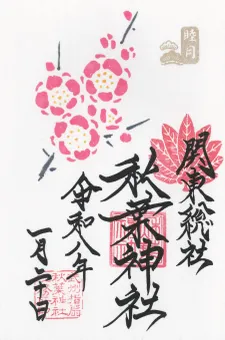 睦月
関東総社
秋葉神社
令和八年
一月二十日
秋葉神社